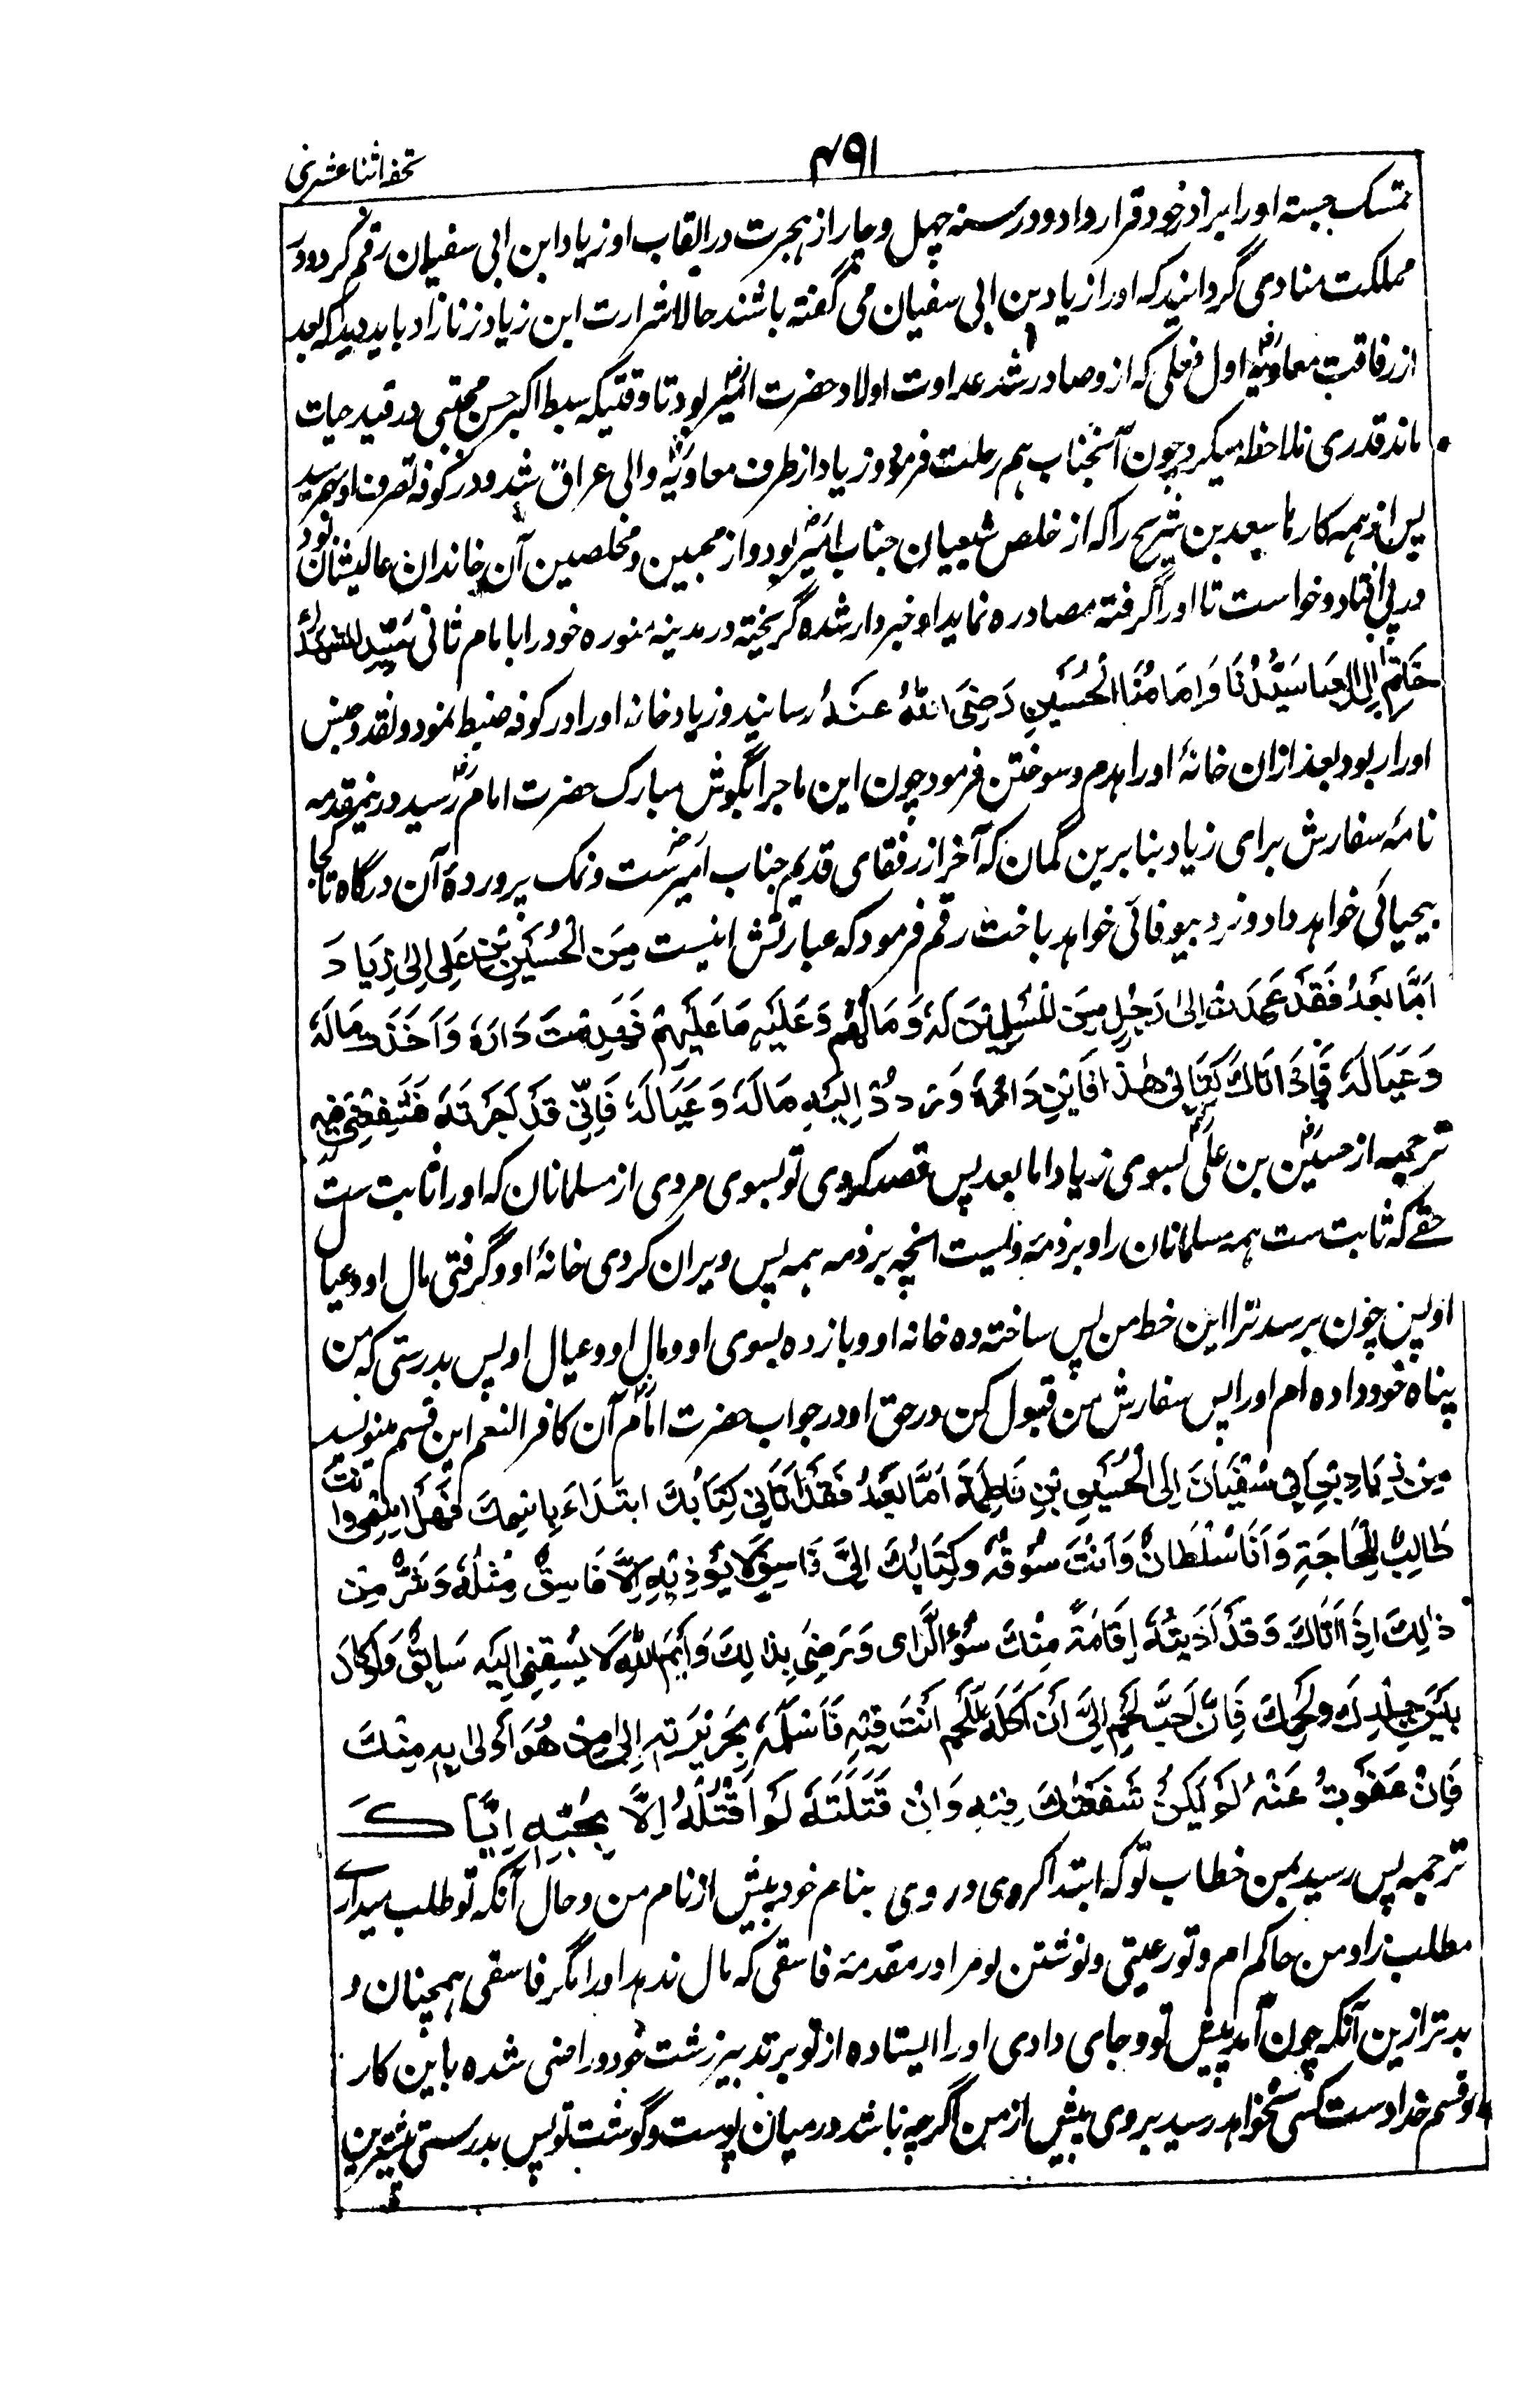 تحفه اثنا عشری
۴۹۱
تمسک جسته او را برادر خود قرار داد و در سنه چهل و چار از هجرت در القاب او زیاد ابن ابی سفیان رقم کرد و در
مملکت منادی گردانید که او را زیاد بن ابی سفیان می گفته باشند حالا شرارت این زیاد زنا زاد باید دید که بعد
از رفاقت معاویهؓ اول فعلی که از و صادر شد عداوت اولاد حضرت امیرؓ بود تا وقتیکه سبط اکبر حسن مجتبی در قید حیات
ماند قدری ملاحظه میکرد چون آنجناب هم رحلت فرمود و زیاد از طرف معاویهؓ والی عراق شد و در کوفه تصرف او بهمرسید
پس از همه کارها سعد بن شریح را که از خلص شیعیان جناب امیرؓ بود و از محبین و مخلصین آن خاندان عالیشان بود
در پی افتاد و خواست تا او را گرفته مصادره نماید او خبردار شده گریخته در مدینه منوره خود را بامام ثانی سَیِّد الشهداء
خاتم آل العبا سَیِّدُنَا وَ اِمَامُنَا الْحُسَیْنِ رَضِیَ اللهُ عَنْهُ رسانید و زیاد خانه او را در کوفه ضبط نمود و نقد و جنس
او را ربود بعد ازان خانۀ او را هدم و سوختن فرمود چون این ماجرا بگوش مبارک حضرت امامؓ رسید درینمقدمه
نامۀ سفارش برای زیاد بنا برین گمان که آخر از رفقای قدیم جناب امیرؓ ست و نمک پروردۀ آن درگاه تا کجا
بیحیائی خواهد داد و نرد بیوفائی خواهد باخت رقم فرمود که عبارتش اینست مِنَ الْحُسَیْنِ بْنِ عَلِی اِلیٰ زِیَاد
اَمَّا بَعْدُ فَقَدْ عَمِدْتَ اِلیٰ رَجُلٍ مِنَ الْمُسْلِمِیْنَ لَهٗ مَا لَهُمْ وَ عَلَیْهِ مَا عَلَیْهِمْ فَهَدَمْتَ دَارَهٗ وَ اَخَذْتَ مَالَهٗ
وَ عَیَالَهٗ فَاِذَا اَتَاكَ کِتَابِیْ هٰذَا فَابْنِ دَارَهٗ وَ رْدُدْ اِلَیْهِ مَالَهٗ وَ عَیَالَهٗ فَاِنِّیْ قَدْ اَجَرْتُهٗ فَشَفِّعْنِیْ فِیْهِ
ترجمه از حسینؓ بن علیؓ بسوی زیاد اما بعد پس قصد کردی تو بسوی مردی از مسلمانان که او را ثابت ست
حقے که ثابت ست همه مسلمانان را و بر ذمۀ ویست آنچه بر ذمه همه پس ویران کردی خانۀ او و گرفتی مال او و عیال
او پس چون برسد ترا این خط من پس ساخته ده خانه او و باز ده بسوی او و مال او و عیال او پس بدرستی که من
پناه خود داده ام او را پس سفارش من قبول کن در حق او در جواب حضرت امامؓ آن کافر النعم این قسم مینویسد
مِنْ زِیَادِ بْنِ اَبِیْ سُفْیَانَ اِلَی الْحُسَیْنِ بْنِ فَاطِمَةَ اَمَّا بَعْدُ فَقَدْ اَتَانِیْ کِتَابُكَ ابْتَدَاءَ بِاسْمِكَ قَبْلَ اِسْمِیْ وَ اَنْتَ
طَالِبٌ لِلْحَاجَةِ وَ اَنَا سُلْطَانٌ وَ اَنْتَ سُوْقَةٌ وَ کِتَابُكَ اِلَیَّ فِی فَاسِقٍ لَا یُؤْذِیْهِ اِلَّا فَاسِقٌ مِثْلُهٗ وَ شَرٌّ مِنْ
ذٰلِكَ اِذَا اَتَاكَ وَ قَدْ اَدَیْتَهٗ اِقَامَةً مِنْكَ سُوْءِ الرَّای وَ تَرْضٰی بِذَالِكَ وَ اَیْمُ اللهِ لَا یَسْبِقُنِیْ اِلَیْهِ سَابِقٌ وَ لَوْ کَانَ
بَیْنَ جِلْدِكَ وَ لَحْمِكَ فَاِنَّ اَحَبَّ لَحْمٍ اِلَیَّ اَنْ آکُلَهٗ لَلَحْمٌ اَنْتَ فِیْهِ فَاَسْلِمْهُ بِجَرِیْرَتِهٖ اِلیٰ مَنْ هُوَ اَوْلیٰ بِهٖ مِنْكَ
فَاِنْ عَفَوْتُ عَنْهُ لَمْ یَکُنْ شَفَعْتُكَ فِیْهِ وَ اِنْ قَتَلْتُهٗ لَمْ اَقْتُلْهُ اِلَّا بِحُبِّهٖ اِیَّاكَ
ترجمه پس رسید بمن خطاب تو که ابتدا کردی در وی بنام خود پیش از نام من و حال آنکه تو طلب میداری
مطلب را و من حاکم ام و تو رعیتی و نوشتن تو مرا در مقدمۀ فاسقی که مال ندهد او را مگر فاسقی همچنان و
بدتر ازین آنکه چون آمد پیش تو و جای دادی او را ایستاده از تو بر تدبیر زشت خود و راضی شده باین کار
و قسم خداست کسی نخواهد رسید بروی پیش از من اگرچه باشد در میان پوست و گوشت تو پس بدرستی بهترین